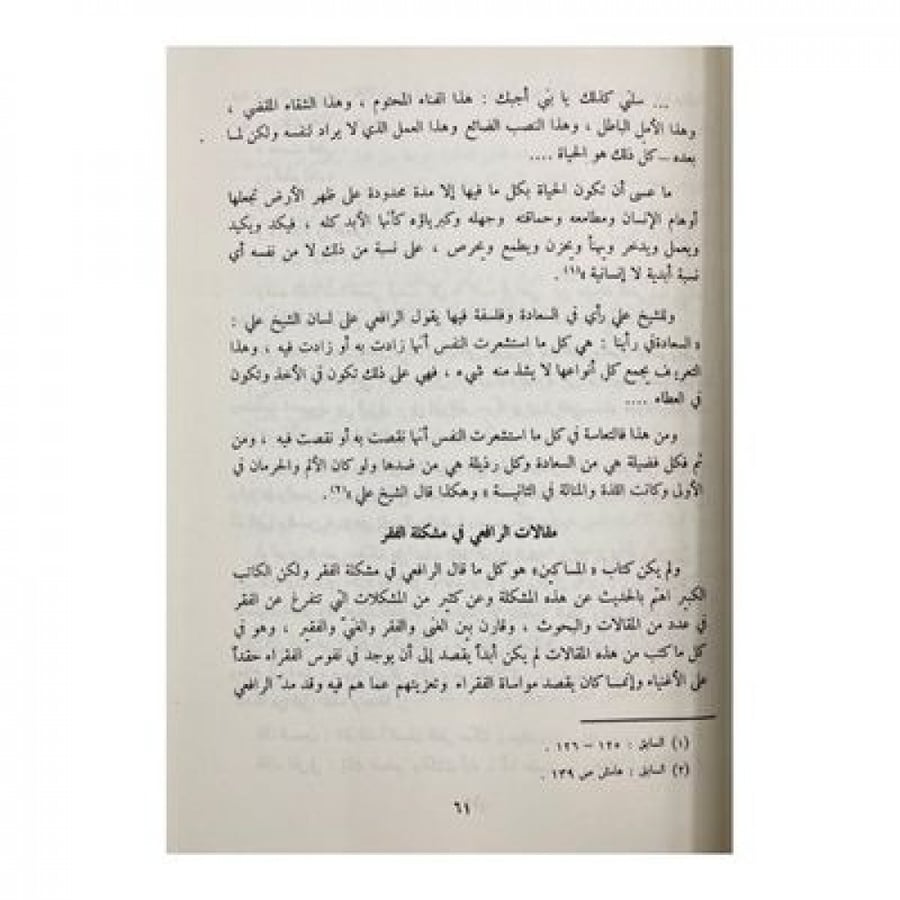 ... سلني كذلك يا بني أجبك : هذا الفناء المحتوم ، وهذا الشقاء المقضي ،
وهذا الأمل الباطل ، وهذا النصب الضائع وهذا العمل الذي لا يراد لنفسه ولكن لما
بعده – كل ذلك هو الحياة ....
ما عسى أن تكون الحياة بكل ما فيها إلا مدة محدودة على ظهر الأرض تجعلها
أوهام الإنسان ومطامعه وحماقته وجهله وكبرياؤه كأنها الأبد كله ، فيكد ويكيد
ويعمل ويدخر ويهنأ ويحزن ويطمع ويحرص ، على نسبة من ذلك لا من نفسه أي
نسبة أبدية لا إنسانية »(١) .
وللشيخ علي رأي في السعادة وفلسفة فيها يقول الرافعي على لسان الشيخ علي :
« السعادة في رأينا : هي كل ما استشعرت النفس أنها زادت به أو زادت فيه ، وهذا
التعريف يجمع كل أنواعها لا يشذ منه شيء ، فهي على ذلك تكون في الأخذ وتكون
في العطاء ....
ومن هذا فالتعاسة في كل ما استشعرت النفس أنها نقصت به أو نقصت فيه ، ومن
ثم فكل فضيلة هي من السعادة وكل رذيلة هي من ضدها ولو كان الألم والحرمان في
الأولى وكانت اللذة والمنالة في الثانيسة » وهكذا قال الشيخ علي »(٢) .
مقالات الرافعي في مشكلة الفقر
ولم يكن كتاب « المساكين » هو كل ما قال الرافعي في مشكلة الفقر ولكن الكاتب
الكبير اهتم بالحديث عن هذه المشكلة وعن كثير من المشكلات التي تتفرغ عن الفقر
في عدد من المقالات والبحوث ، وقارن بين الغنى والفقر والغنيّ والفقير ، وهو في
كل ما كتب من هذه المقالات لم يكن أبداً يقصد إلى أن يوجد في نفوس الفقراء حقداً
على الأغنياء وإنمسا كان يقصد مواساة الفقراء وتعزيتهم عما هم فيه وقد مدّ الرافعي
(١) السابق : ١٢٥ – ١٢٦ .
(٢) السابق : هامش ص ١٣٩ .
٦١